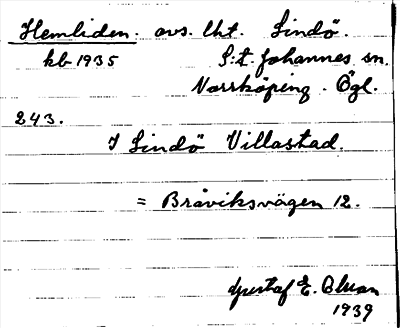 Hemliden. avs. lht. Lindö.
kb 1935 S:t. Johannes sn.
Norrköping. Ögl.
243.
I Lindö Villastad.
= Bråviksvägen 12.
Gustaf E. Blman
1939